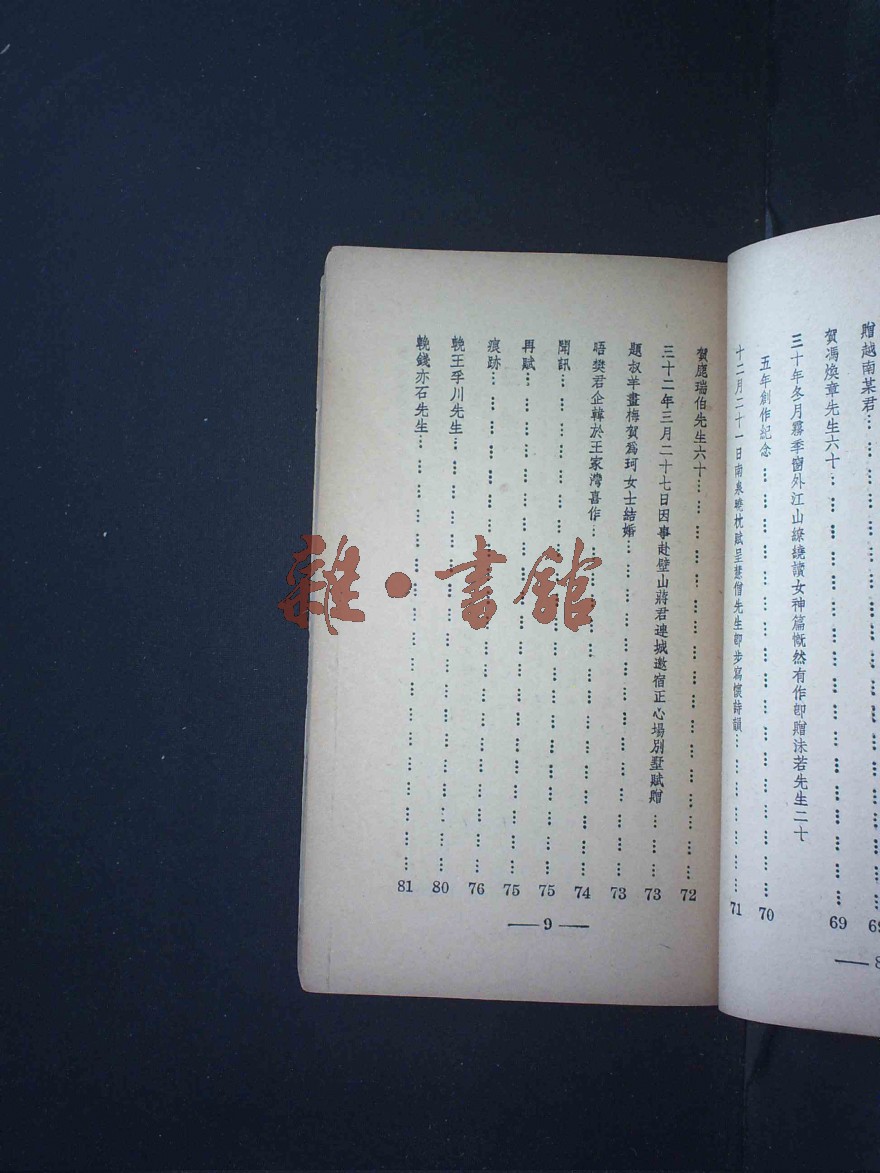 贈越南某君……………………69
賀馮煥章先生六十……………………69
三十年冬月霧季窗外江山繚繞讀女神篇慨然有作卽贈沫若先生二十
五年創作紀念……………………70
十二月二十一日南泉曉枕賦呈慧僧先生卽步寫懷詩韻……………………71
— 8
賀應瑞伯先生六十……………………72
三十二年三月二十七日因事赴璧山蔣君連城邀宿正心場別墅賦贈………73
題叔羊畫梅賀爲珂女士結婚……………………73
晤樊君企韓於王家灣喜作……………………74
聞訊……………………75
再賦……………………75
痕跡……………………76
輓王孚川先生……………………80
輓錢亦石先生……………………81
— 9 —
雜·書館